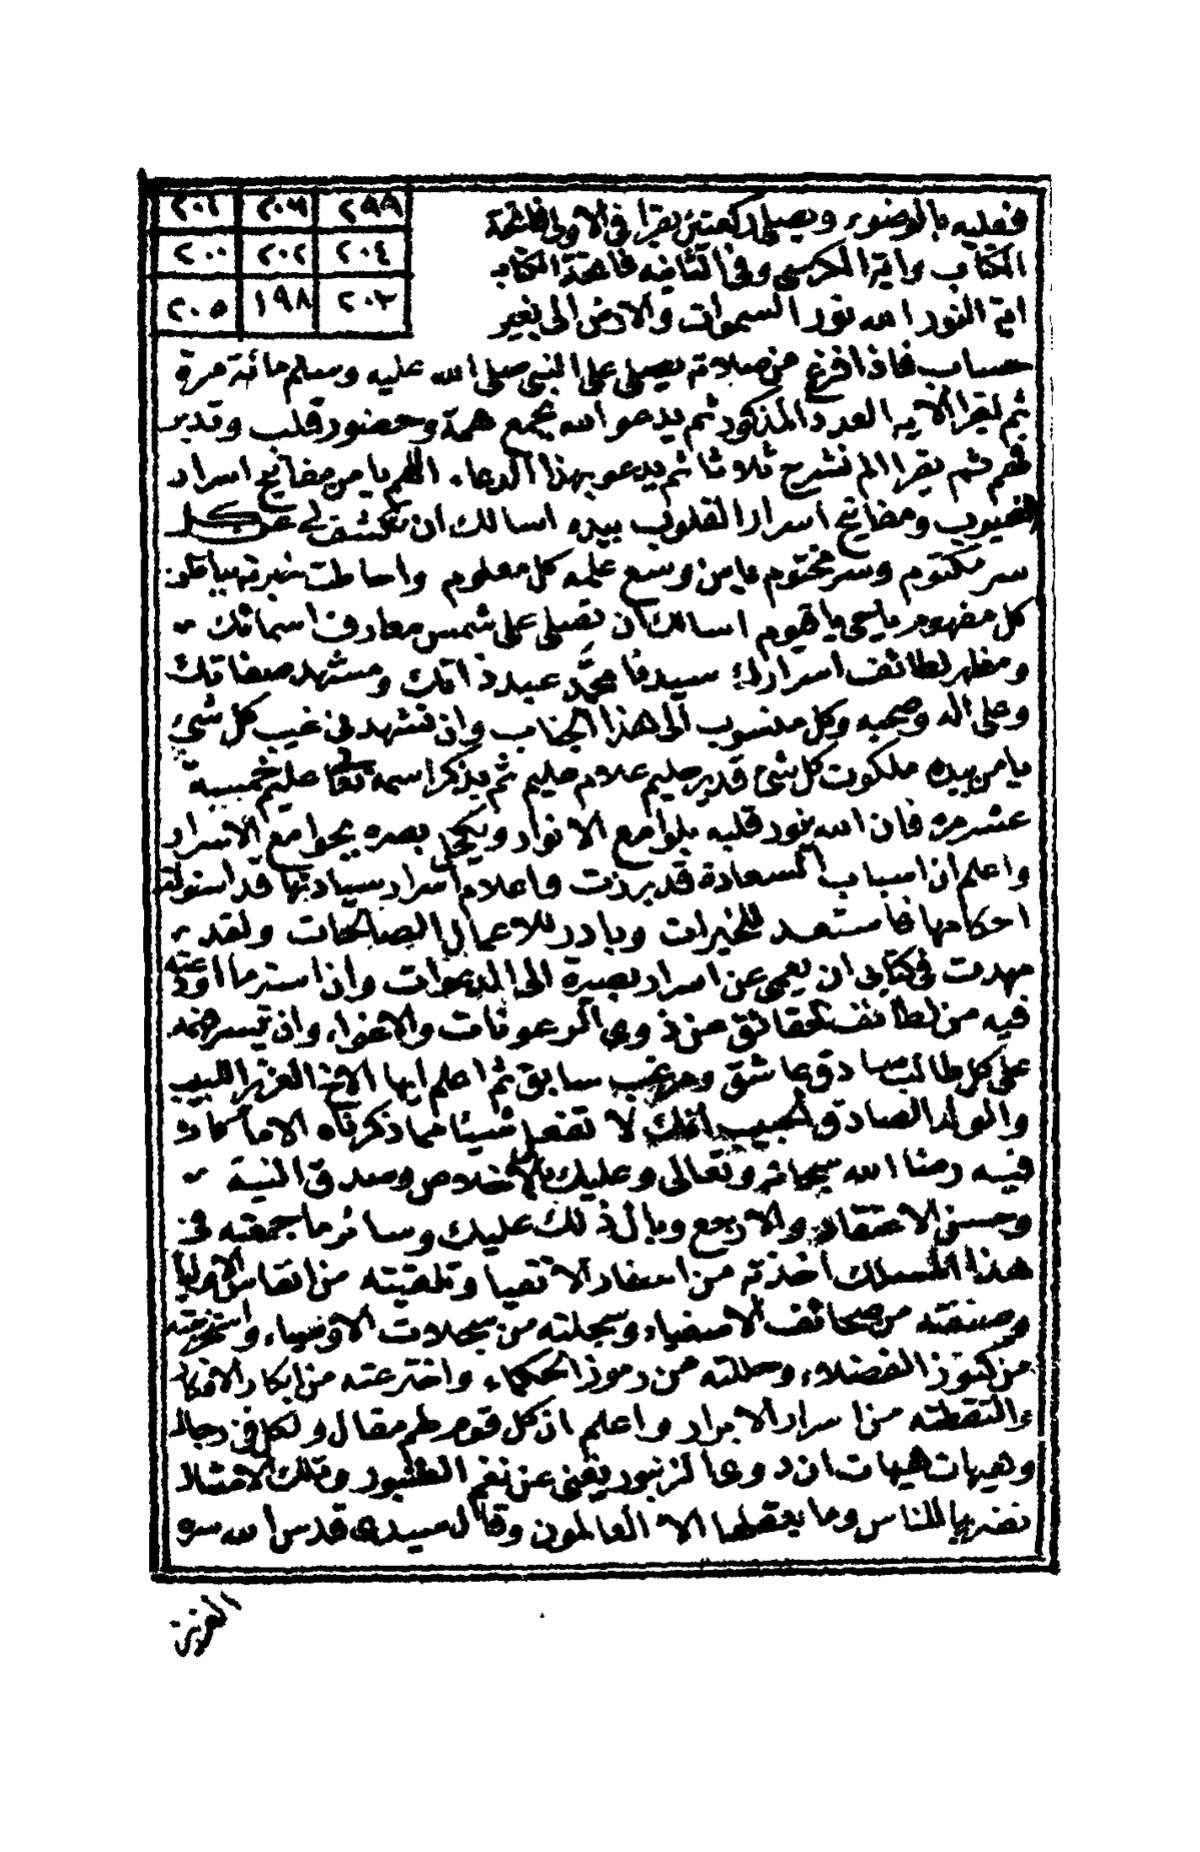 ٢٠١ ٢٠٦ ٢٩٩
٢٠٠ ٢٠٢ ٢٠٤
٢٠٥ ١٩٨ ٢٠٣
فعليه بالوضوء ويصلى ركعتين يقرا فى الاولى فاتحة
الكتاب واية الكرسى وفى الثانيه فاتحة الكتاب
اية النور الله نور السموات والارض الى بغير
حساب فاذا فرغ من صلاته يصلى على النبى صلى الله عليه وسلم مائة مرة
ثم ليقرا الايه العدد المذكور ثم يدعو الله بجمع همة وحضور قلب وتدبر
فهم ثم يقرا الم نشرح ثلاثا ثم يدعو بهذا الدعاء اللهم يا من مفاتيح اسرار
الغيوب ومفاتيح اسرار القلوب بيده اسالك ان تكشف لى عن كل
سر مكتوم وسر مختوم يا من وسع علمه كل معلوم واحاطت خبرته بباطن
كل مفهوم يا حى يا قيوم اسالك ان تصلى على شمس معارف اسمائك
ومظهر لطائف اسرارك سيدنا محمد عبد ذاتك ومشهد صفاتك
وعلى اله وصحبه وكل منسوب الى هذا الجناب وان تشهدنى غيب كل شىء
يا من بيده ملكوت كل شىء قدير حليم علام عليم ثم يذكر اسمه تعالى عليم خمسة
عشر مرة فان الله ينور قلبه بلوامع الانوار ويكحل بصره بجوامع الاسرار
واعلم ان اسباب السعادة قد برزت واعلام اسرار سيادتها قد استولت
احكامها فاستعد للخيرات وبادر للاعمال الصالحات ولقد
مهدت فى كتابى ان يعمى عن اسرار بصيرة الى الدعوات وان استر ما اودعته
فيه من لطائف الحقائق عن ذوى الرعونات والاغواء وان تيسر فهمه
على كل طالب صادق عاشق ومرغب سابق ثم اعلم ايها الاخ العزيز اللبيب
والولد الصادق الحبيب انك لا تفعل شيئا مما ذكرناه الا ما كان
فيه رضا الله سبحانه وتعالى وعليك بالاخلاص وصدق النية
وحسن الاعتقاد والا رجع وبال ذلك عليك وسائر ما جمعته فى
هذا المسلك اخذته من اسفار الاتقيا وتلقيته من انفاس الاوليا
وصنفته من صحائف الاصفياء وسجلته من سجلات الاوصياء واستخرجته
من كنوز الفضلاء وحللته من رموز الحكماء واخترعته من ابكار الافكار
والتقطته من اسرار الابرار واعلم ان كل قوم لهم مقال ولكل فن رجال
وهيهات هيهات ان دوى الزنبور يغنى عن نغم الطنبور وتلك الامثال
نضربها للناس وما يعقلها الا العالمون وقال سيدى قدس الله سره
العزيز